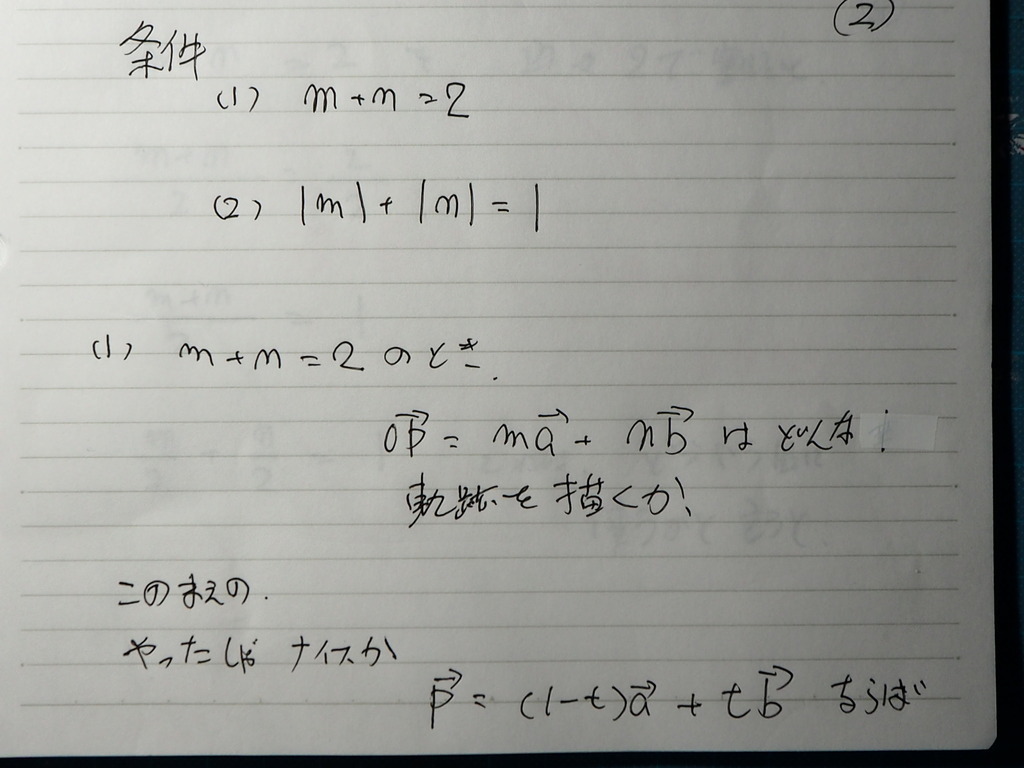 (2)
条件
(1) m+n=2
(2) |m|+|n|=1
(1) m+n=2のとき.
OP→ = ma→ + nb→ はどんな
軌跡を描くか!
このまえの.
やったじゃ ナイスか
p→ = (1-t)a→ + tb→ ならば